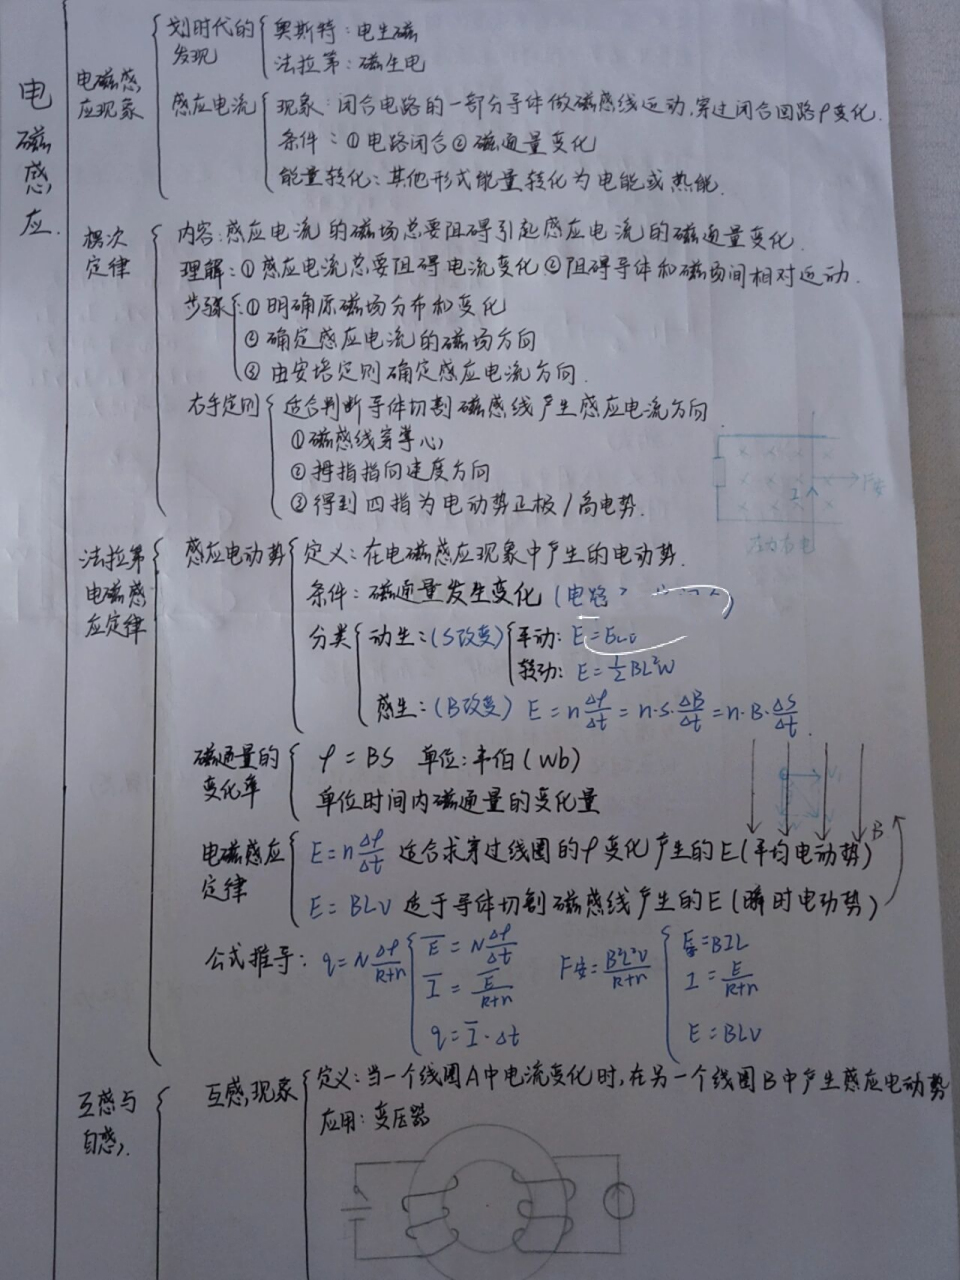 电磁感应
电磁感应现象
划时代的发现
奥斯特：电生磁
法拉第：磁生电
感应电流
现象：闭合电路的一部分导体做磁感线运动，穿过闭合回路φ变化.
条件：①电路闭合②磁通量变化
能量转化：其他形式能量转化为电能或热能.
楞次定律
内容：感应电流的磁场总要阻碍引起感应电流的磁通量变化.
理解：①感应电流总要阻碍电流变化②阻碍导体和磁场间相对运动.
步骤：①明确原磁场分布和变化
②确定感应电流的磁场方向
③由安培定则确定感应电流方向.
右手定则
适合判断导体切割磁感线产生感应电流方向
①磁感线穿掌心
②拇指指向速度方向
③得到四指为电动势正极/高电势.
I F安
法拉第电磁感应定律
感应电动势
定义：在电磁感应现象中产生的电动势.
条件：磁通量发生变化(电路
分类
动生：(S改变)
平动：E=BLv
转动：E=½BL²W
感生：(B改变) E=nΔφ/Δt=n·S·ΔB/Δt=n·B·ΔS/Δt.
磁通量的变化率
φ=BS 单位：韦伯(Wb)
单位时间内磁通量的变化量
V₁
B
电磁感应定律
E=nΔφ/Δt 适合求穿过线圈的φ变化产生的E(平均电动势)
E=BLV 适于导体切割磁感线产生的E(瞬时电动势)
公式推导：q=NΔφ/R+r
E̅=NΔφ/Δt
I̅=E̅/R+r
q=I̅·Δt
F安=B²L²V/R+r
F安=BIL
I=E/R+r
E=BLV
互感与自感.
互感现象
定义：当一个线圈A中电流变化时，在另一个线圈B中产生感应电动势
应用：变压器